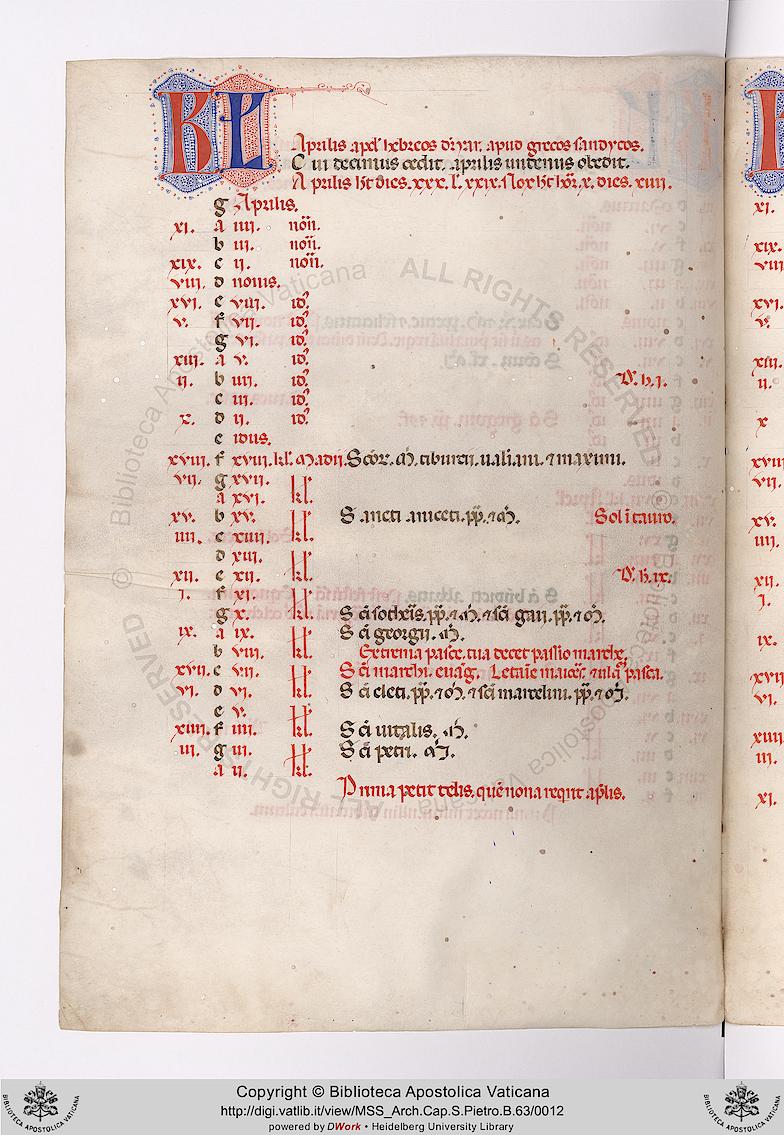 KL
Aprilis apd' hebreos
apud grecos
C ui decimus cedit. aprilis undenus obedit.
Aprilis h't dies. xxx. l'. xxix. Nox h't hor. x. dies. xiiii.
g Aprilis.
xi. a iiii. non.
b iii. non.
xix. c ii. non.
viii. d nonis.
xvi. e viii. id'.
v. f vii. id'.
g vi. id'.
xiii. a v. id'.
ii. b iiii. id'. D'. h. i.
c iii. id'.
x. d ii. id'.
e idus.
xviii. f xviii. kl'. madii. Scor. M. tiburtii. ualiani. et maximi.
vii. g xvii. kl'.
a xvi.
xv. b xv. kl'. Sancti aniceti. pp. et M. Sol i tauro.
iiii. c xiiii.
d xiii. kl'.
xii. e xii. D'. h. ix.
i. f xi. kl'.
g x. Sci sotheris. pp. et M. et sci gaii. pp. et M.
ix. a ix. kl'. Sci georgii. M.
b viii. Extrema pasce. tua decet passio marche.
xvii. c vii. kl'. Sci marchi. euag. Letanie maior. et ulta pasca.
vi. d vi. Sci cleti. pp. et M. et sci marcelini. pp. et M.
e v. kl'.
xiiii. f iiii. Sci uitalis. M.
iii. g iii. kl'. Sci petri. M.
a ii.
Prima petit telis. que nona requit aplis.
xi.
xix.
viii
xvi
v.
xiii.
ii.
x
xviii
vii.
xv.
iiii.
xii.
i.
ix.
xvii
vi.
xiiii
iii.
xi.
© Biblioteca Apostolica Vaticana ALL RIGHTS RESERVED
© Biblioteca Apostolica Vaticana ALL RIGHTS RESERVED
BIBLIOTECA APOSTOLICA VATICANA
Copyright © Biblioteca Apostolica Vaticana
http://digi.vatlib.it/view/MSS_Arch.Cap.S.Pietro.B.63/0012
powered by DWork • Heidelberg University Library
BIBLIOTECA APOSTOLICA VATICANA